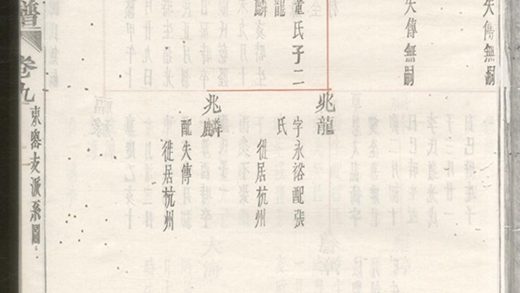 失傳無嗣
失傳無嗣
童氏子二
龍
麟
兆龍
字永裕配張
氏
徙居杭州
兆麟
配失傳
徙居杭州
譜
卷九
東支派系圖